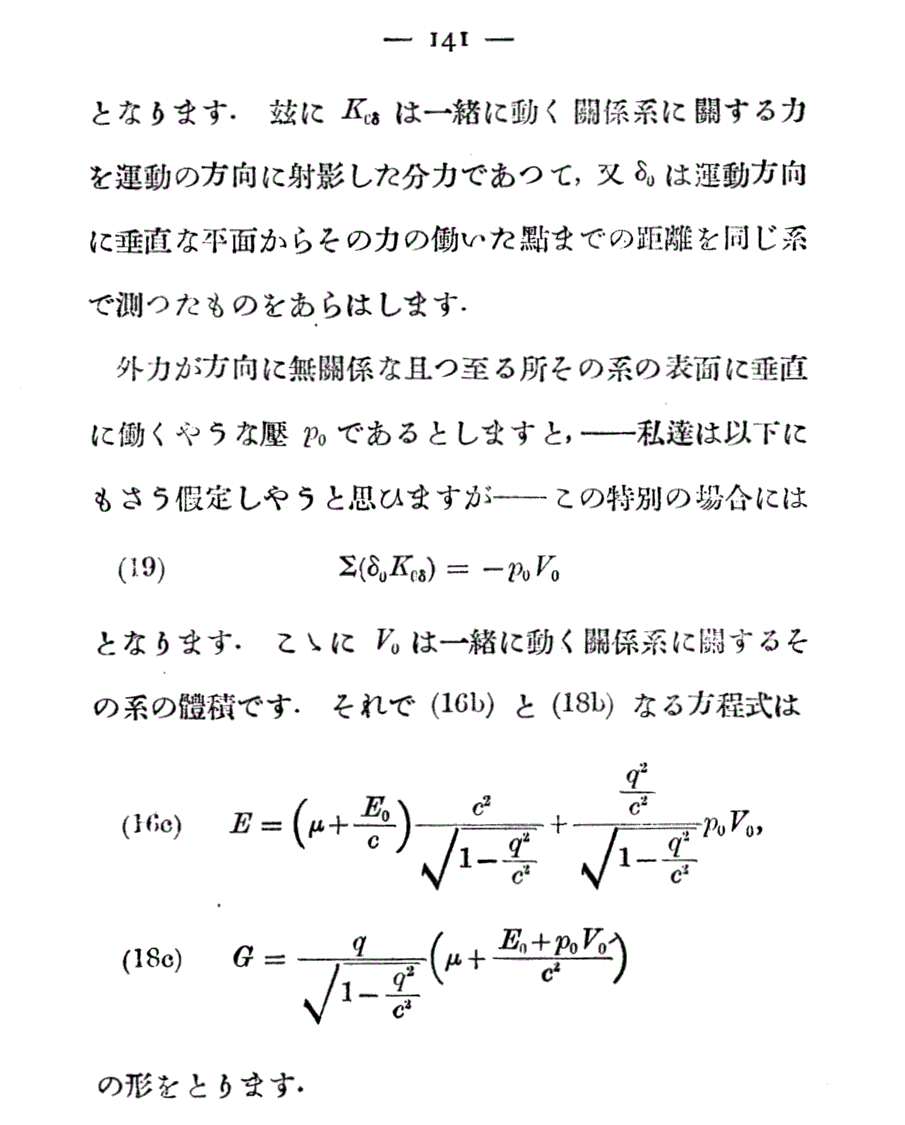 — 141 —
となります. 玆に K₀δ は一緒に動く關係系に關する力
を運動の方向に射影した分力であつて, 又 δ₀ は運動方向
に垂直な平面からその力の働いた點までの距離を同じ系
で測つたものをあらはします.
外力が方向に無關係な且つ至る所その系の表面に垂直
に働くやうな壓 p₀ であるとしますと, ——私達は以下に
もさう假定しやうと思ひますが——この特別の場合には
(19) Σ(δ₀K₀δ) = −p₀V₀
となります. こゝに V₀ は一緒に動く關係系に關するそ
の系の體積です. それで (16b) と (18b) なる方程式は
(16c) E = (μ + E₀/c) c²/√(1 − q²/c²) + (q²/c²)/√(1 − q²/c²) p₀V₀,
(18c) G = q/√(1 − q²/c²) (μ + (E₀ + p₀V₀)/c²)
の形をとります.